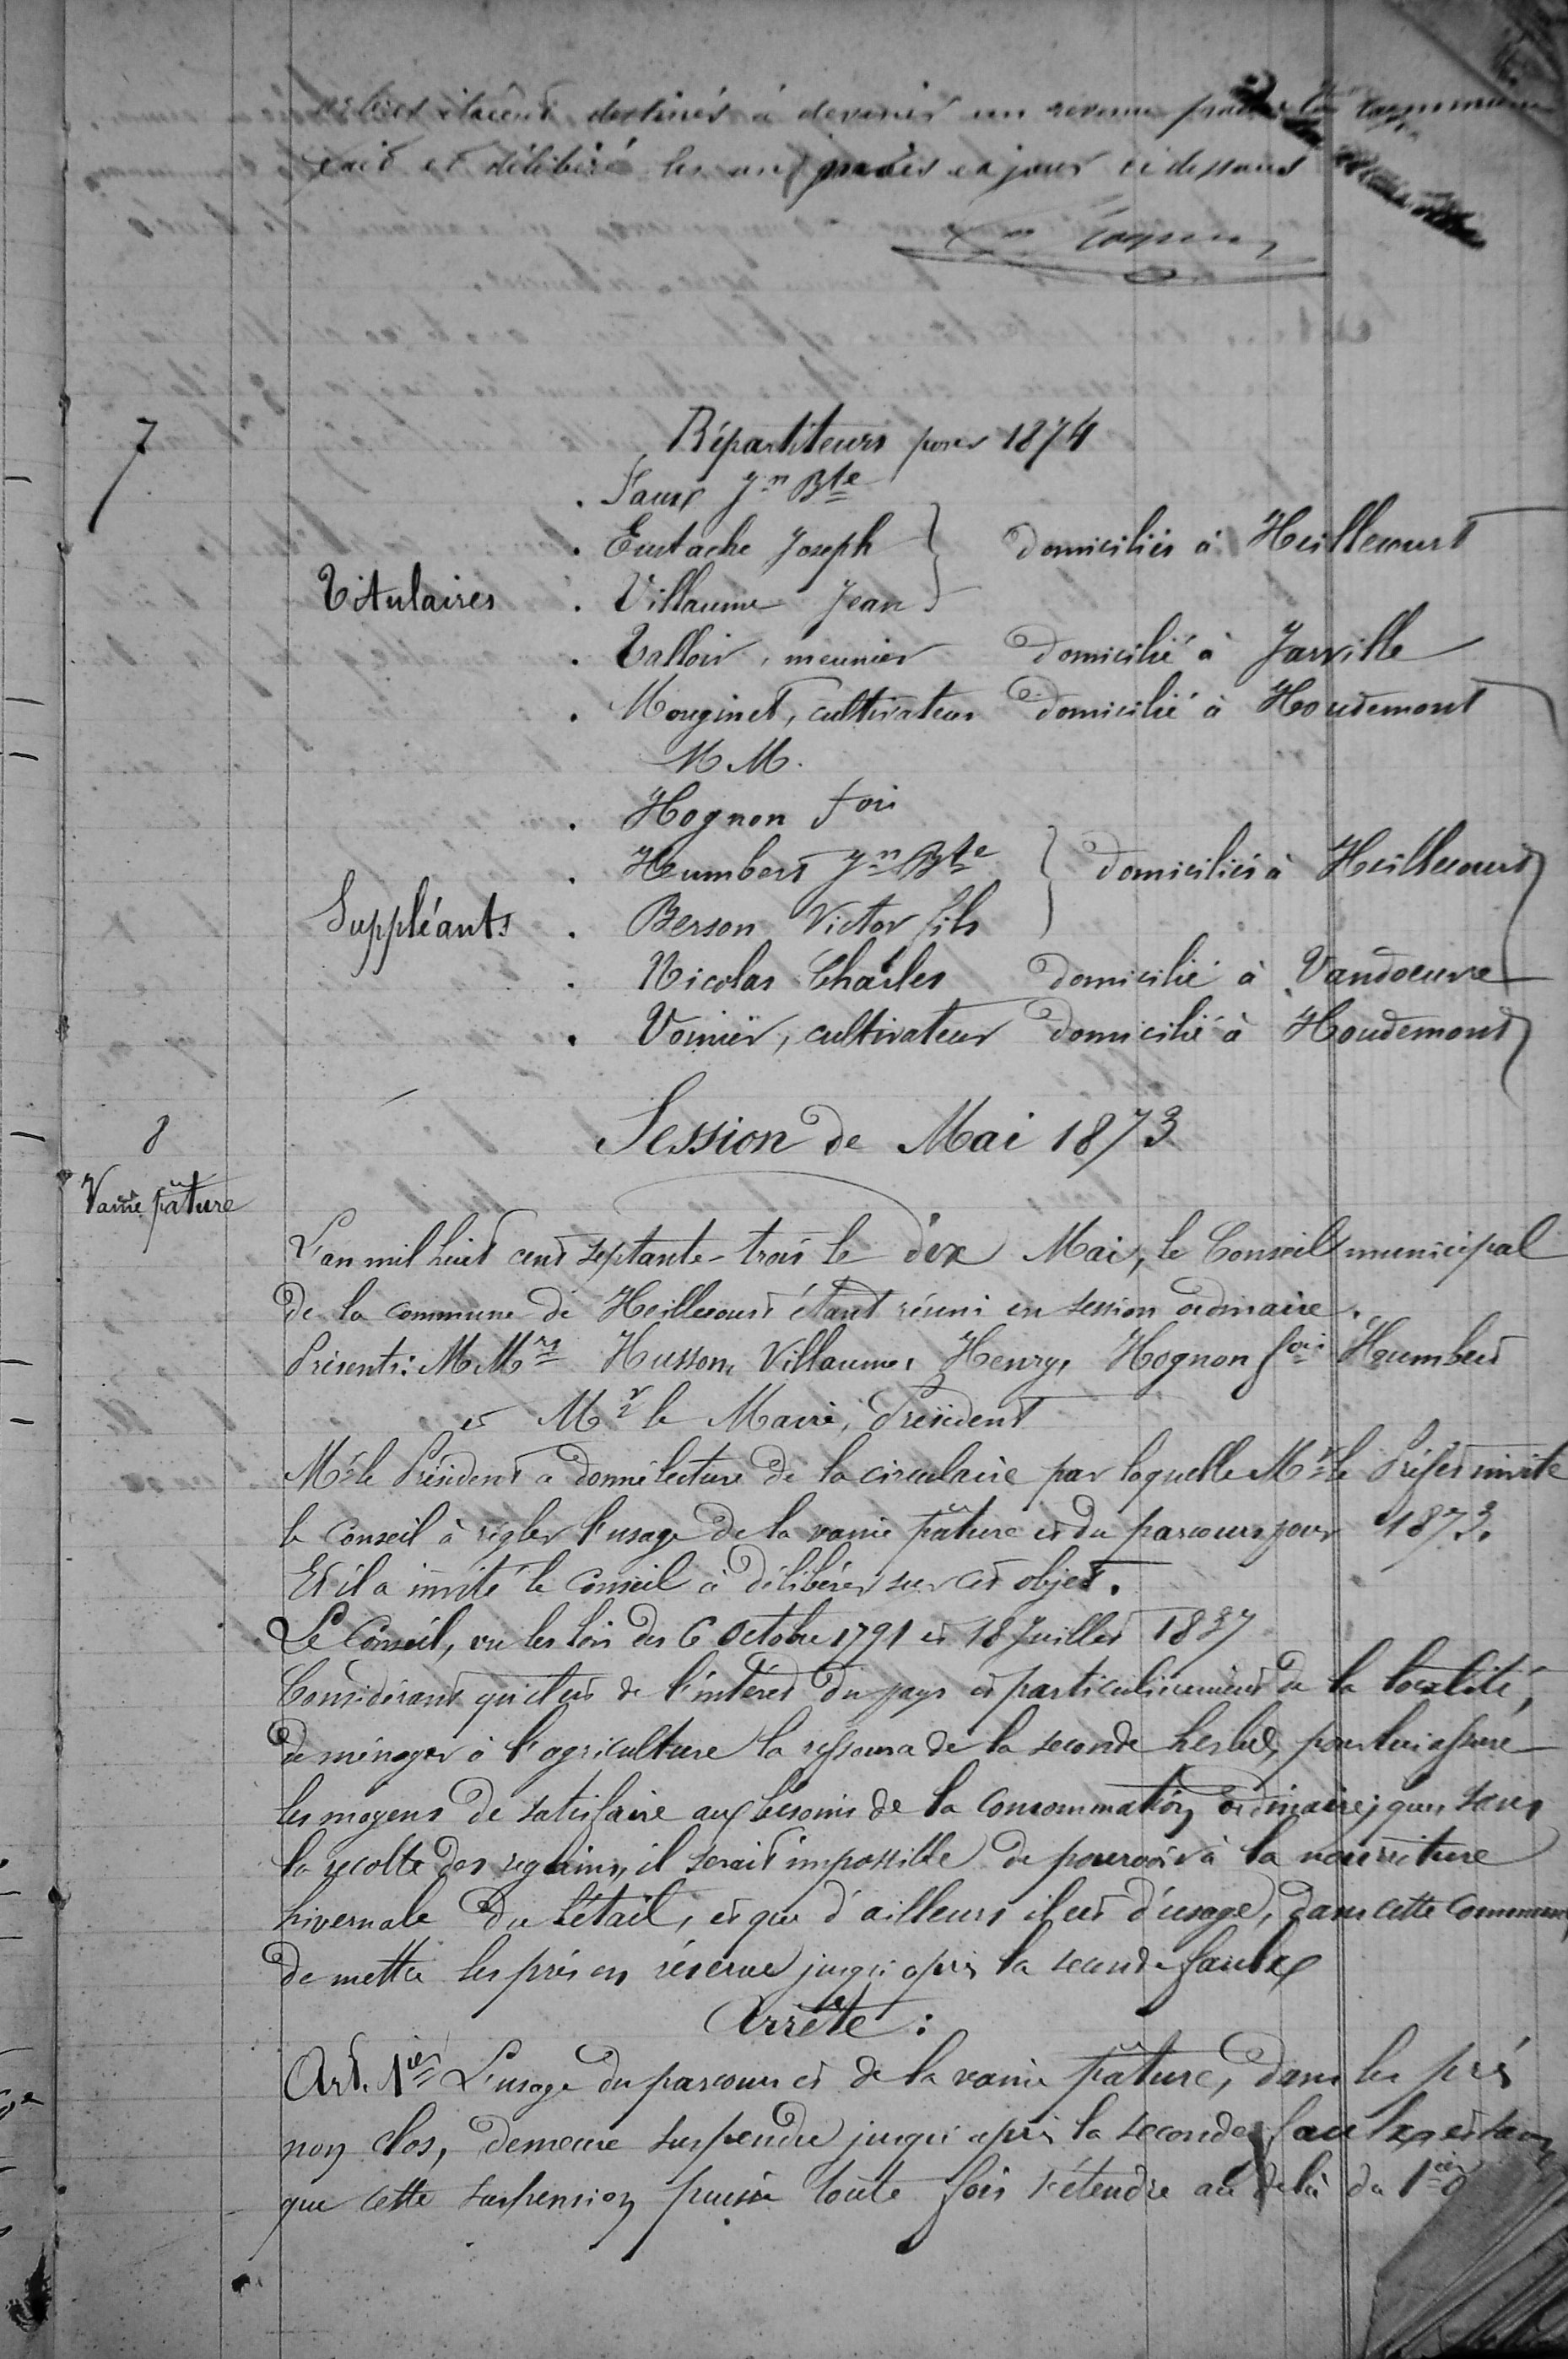 étaient destinés à devenir un revenu pour la commune
fait et délibéré les an, mois et jour ci dessus
7
Répartiteurs pour 1874
. Faux Jn Bte
. Eustache Joseph } domiciliés à Heillecourt
Titulaires . Villaume Jean
. Talloir, meunier domicilié à Jarville
. Mouginet, cultivateur domicilié à Houdemont
M M.
. Hognon fois
. Humbert Jn Bte } domiciliés à Heillecourt
Suppléants . Berson Victor fils
. Nicolas Charles domicilié à Vandoeuvre
. Voinier, cultivateur domicilié à Houdemont
8 Session de Mai 1873
Vaine pâture
L'an mil huit cent septante-trois le dix Mai, le Conseil municipal
de la commune de Heillecourt étant réuni en session ordinaire.
Présents: M Mrs Husson, Villaume, Henry, Hognon fois Humbert
et Mr le Maire, Président
Mr le Président a donné lecture de la circulaire par laquelle Mr le Préfet invite
le Conseil à régler l'usage de la vaine pâture et du parcours pour 1873.
Et il a invité le Conseil à délibérer sur cet objet.
Le Conseil, vu les lois des 6 Octobre 1791 et 18 Juillet 1837
Considérant qu'il est de l'intéret du pays et particulièrement de la localité,
de ménager à l'agriculture la ressource de la seconde herbe, pour lui assurer
les moyens de satisfaire aux besoins de la consommation ordinaire; que, sans
la recolte des regains, il serait impossible de pourvoir à la nourriture
hivernale du bétail, et que d'ailleurs il est d'usage, dans cette commune,
de mettre les prés en réserve jusqu'après la seconde faulx
Arrête:
Art. 1er L'usage du parcours et de la vaine pâture, dans les prés
non clos, demeure suspendu jusqu'après la seconde faulx et sans
que cette suspension puisse toute fois s'étendre au delà du 1er